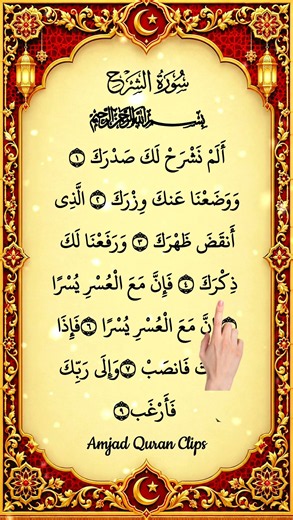 سُورَةُ الشَّرْحِ
بِسْمِ اللَّهِ الرَّحْمَٰنِ الرَّحِيمِ
أَلَمْ نَشْرَحْ لَكَ صَدْرَكَ ١
وَوَضَعْنَا عَنكَ وِزْرَكَ ٢ الَّذِى
أَنقَضَ ظَهْرَكَ ٣ وَرَفَعْنَا لَكَ
ذِكْرَكَ ٤ فَإِنَّ مَعَ الْعُسْرِ يُسْرًا
مَعَ الْعُسْرِ يُسْرًا ٦ فَإِذَا
فَانصَبْ ٧ وَإِلَى رَبِّكَ
فَأَرْغَب ٩
Amjad Quran Clips